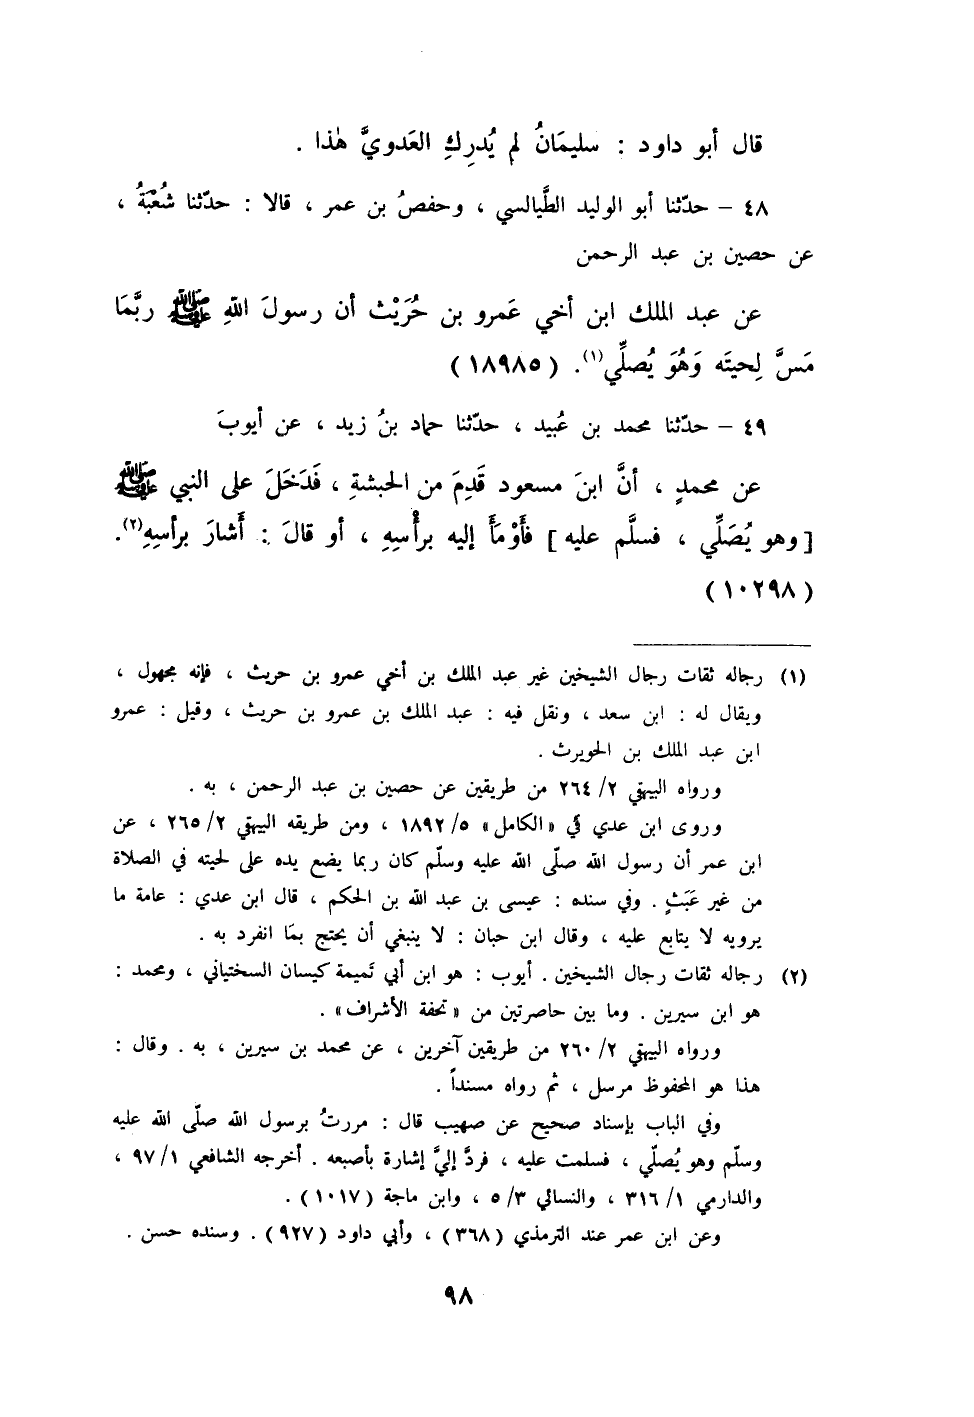 قال أبو داود : سليمَانُ لم يُدرِكِ العَدويَّ هٰذا .
٤٨ – حدّثنا أبو الوليد الطَّيالسي ، وحفصُ بن عمر ، قالا : حدّثنا شُعْبَةُ ،
عن حصين بن عبد الرحمن
عن عبد الملك ابن أخي عَمرو بن حُرَيْث أن رسولَ اللهِ ﷺ ربَّمَا
مَسَّ لِحيتَه وَهُوَ يُصلِّي(١). (١٨٩٨٥)
٤٩ – حدّثنا محمد بن عُبيد ، حدّثنا حماد بنُ زيد ، عن أيوبَ
عن محمدٍ ، أنَّ ابنَ مسعود قَدِمَ من الحبشةِ ، فَدَخَلَ على النبي ﷺ
[وهو يُصَلِّي ، فسلَّم عليه] فأَوْمَأَ إليه برأْسِهِ ، أو قالَ : أَشارَ برأسِهِ(٢).
(١٠٢٩٨)
(١) رجاله ثقات رجال الشيخين غير عبد الملك بن أخي عمرو بن حريث ، فإنه مجهول ،
ويقال له : ابن سعد ، ونقل فيه : عبد الملك بن عمرو بن حريث ، وقيل : عمرو
ابن عبد الملك بن الحويرث .
ورواه البيهقي ٢/ ٢٦٤ من طريقين عن حصين بن عبد الرحمن ، به .
وروى ابن عدي في «الكامل» ٥/ ١٨٩٢ ، ومن طريقه البيهقي ٢/ ٢٦٥ ، عن
ابن عمر أن رسول الله صلّى الله عليه وسلّم كان ربما يضع يده على لحيته في الصلاة
من غير عَبَثٍ . وفي سنده : عيسى بن عبد الله بن الحكم ، قال ابن عدي : عامة ما
يرويه لا يتابع عليه ، وقال ابن حبان : لا ينبغي أن يحتج بمَا انفرد به .
(٢) رجاله ثقات رجال الشيخين . أيوب : هو ابن أبي تَميمة كيسان السختياني ، ومحمد :
هو ابن سيرين . وما بين حاصرتين من «تحفة الأشراف» .
ورواه البيهقي ٢/ ٢٦٠ من طريقين آخرين ، عن محمد بن سيرين ، به . وقال :
هذا هو المحفوظ مرسل ، ثم رواه مسنداً .
وفي الباب بإسناد صحيح عن صهيب قال : مررتُ برسول الله صلّى الله عليه
وسلّم وهو يُصلّي ، فسلمت عليه ، فردَّ إليَّ إشارة بأصبعه . أخرجه الشافعي ١/ ٩٧ ،
والدارمي ١/ ٣١٦ ، والنسائي ٣/ ٥ ، وابن ماجة (١٠١٧) .
وعن ابن عمر عند الترمذي (٣٦٨) ، وأبي داود (٩٢٧) . وسنده حسن .
٩٨